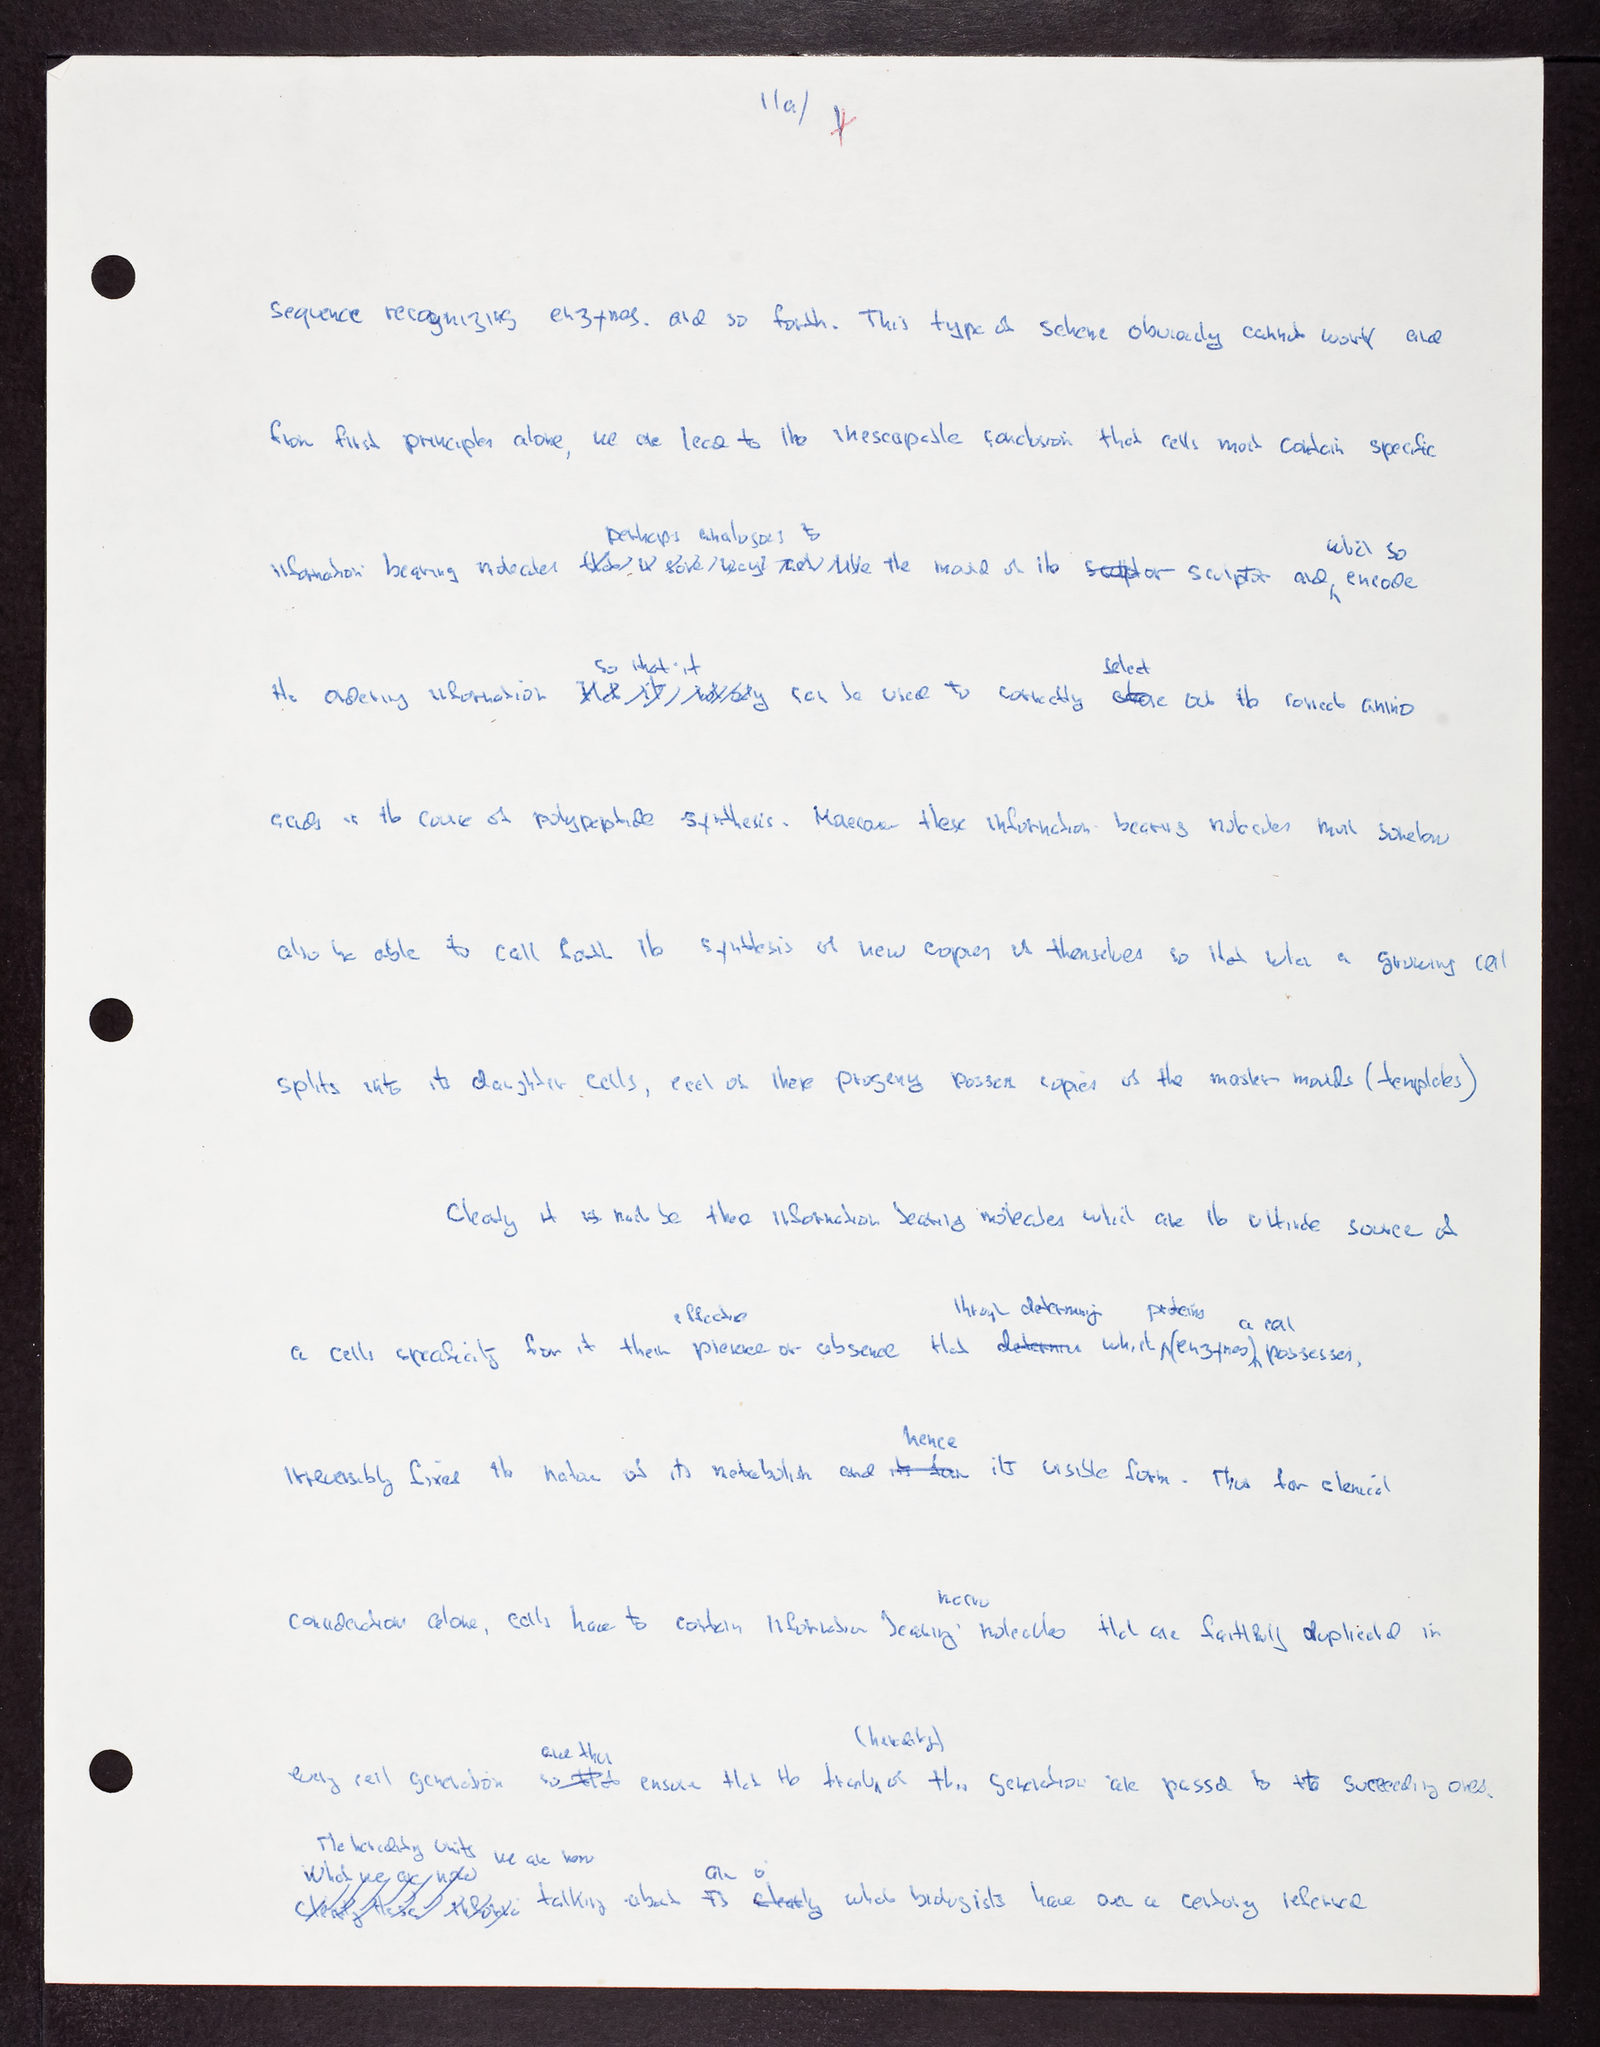 11a/
sequence recognizing enzymes. and so forth. This type of scheme obviously cannot work and
from first principles alone, we are lead to the inescapable conclusion that cells must contain specific
perhaps analogous to
which so
information bearing molecules like the mould of the sculptor sculptor and encode
so that it
select
the ordering information that it can be used to correctly out the correct amino
acids in the course of polypeptide synthesis. Moreover these information bearing molecules must somehow
also be able to call forth the synthesis of new copies of themselves so that when a growing cell
splits into its daughter cells, each of these progeny possess copies of the master moulds (templates)
Clearly it is must be these information bearing molecules which are the ultimate source of
effective
through determining proteins a cell
a cells specificity for it their presence or absence that determine which (enzymes) possesses,
irreversibly fixes the nature of its metabolism and its form its visible form. Thus for chemical
hence
macro
consideration alone, cells have to contain information bearing molecules that are faithfully duplicated in
and thus
(heredity)
every cell generation so that ensure that the of this generation are passed to the succeeding ones.
The heredity units we are now
What we are now
are o
Clearly these talking about is clearly what biologists have over a century referred